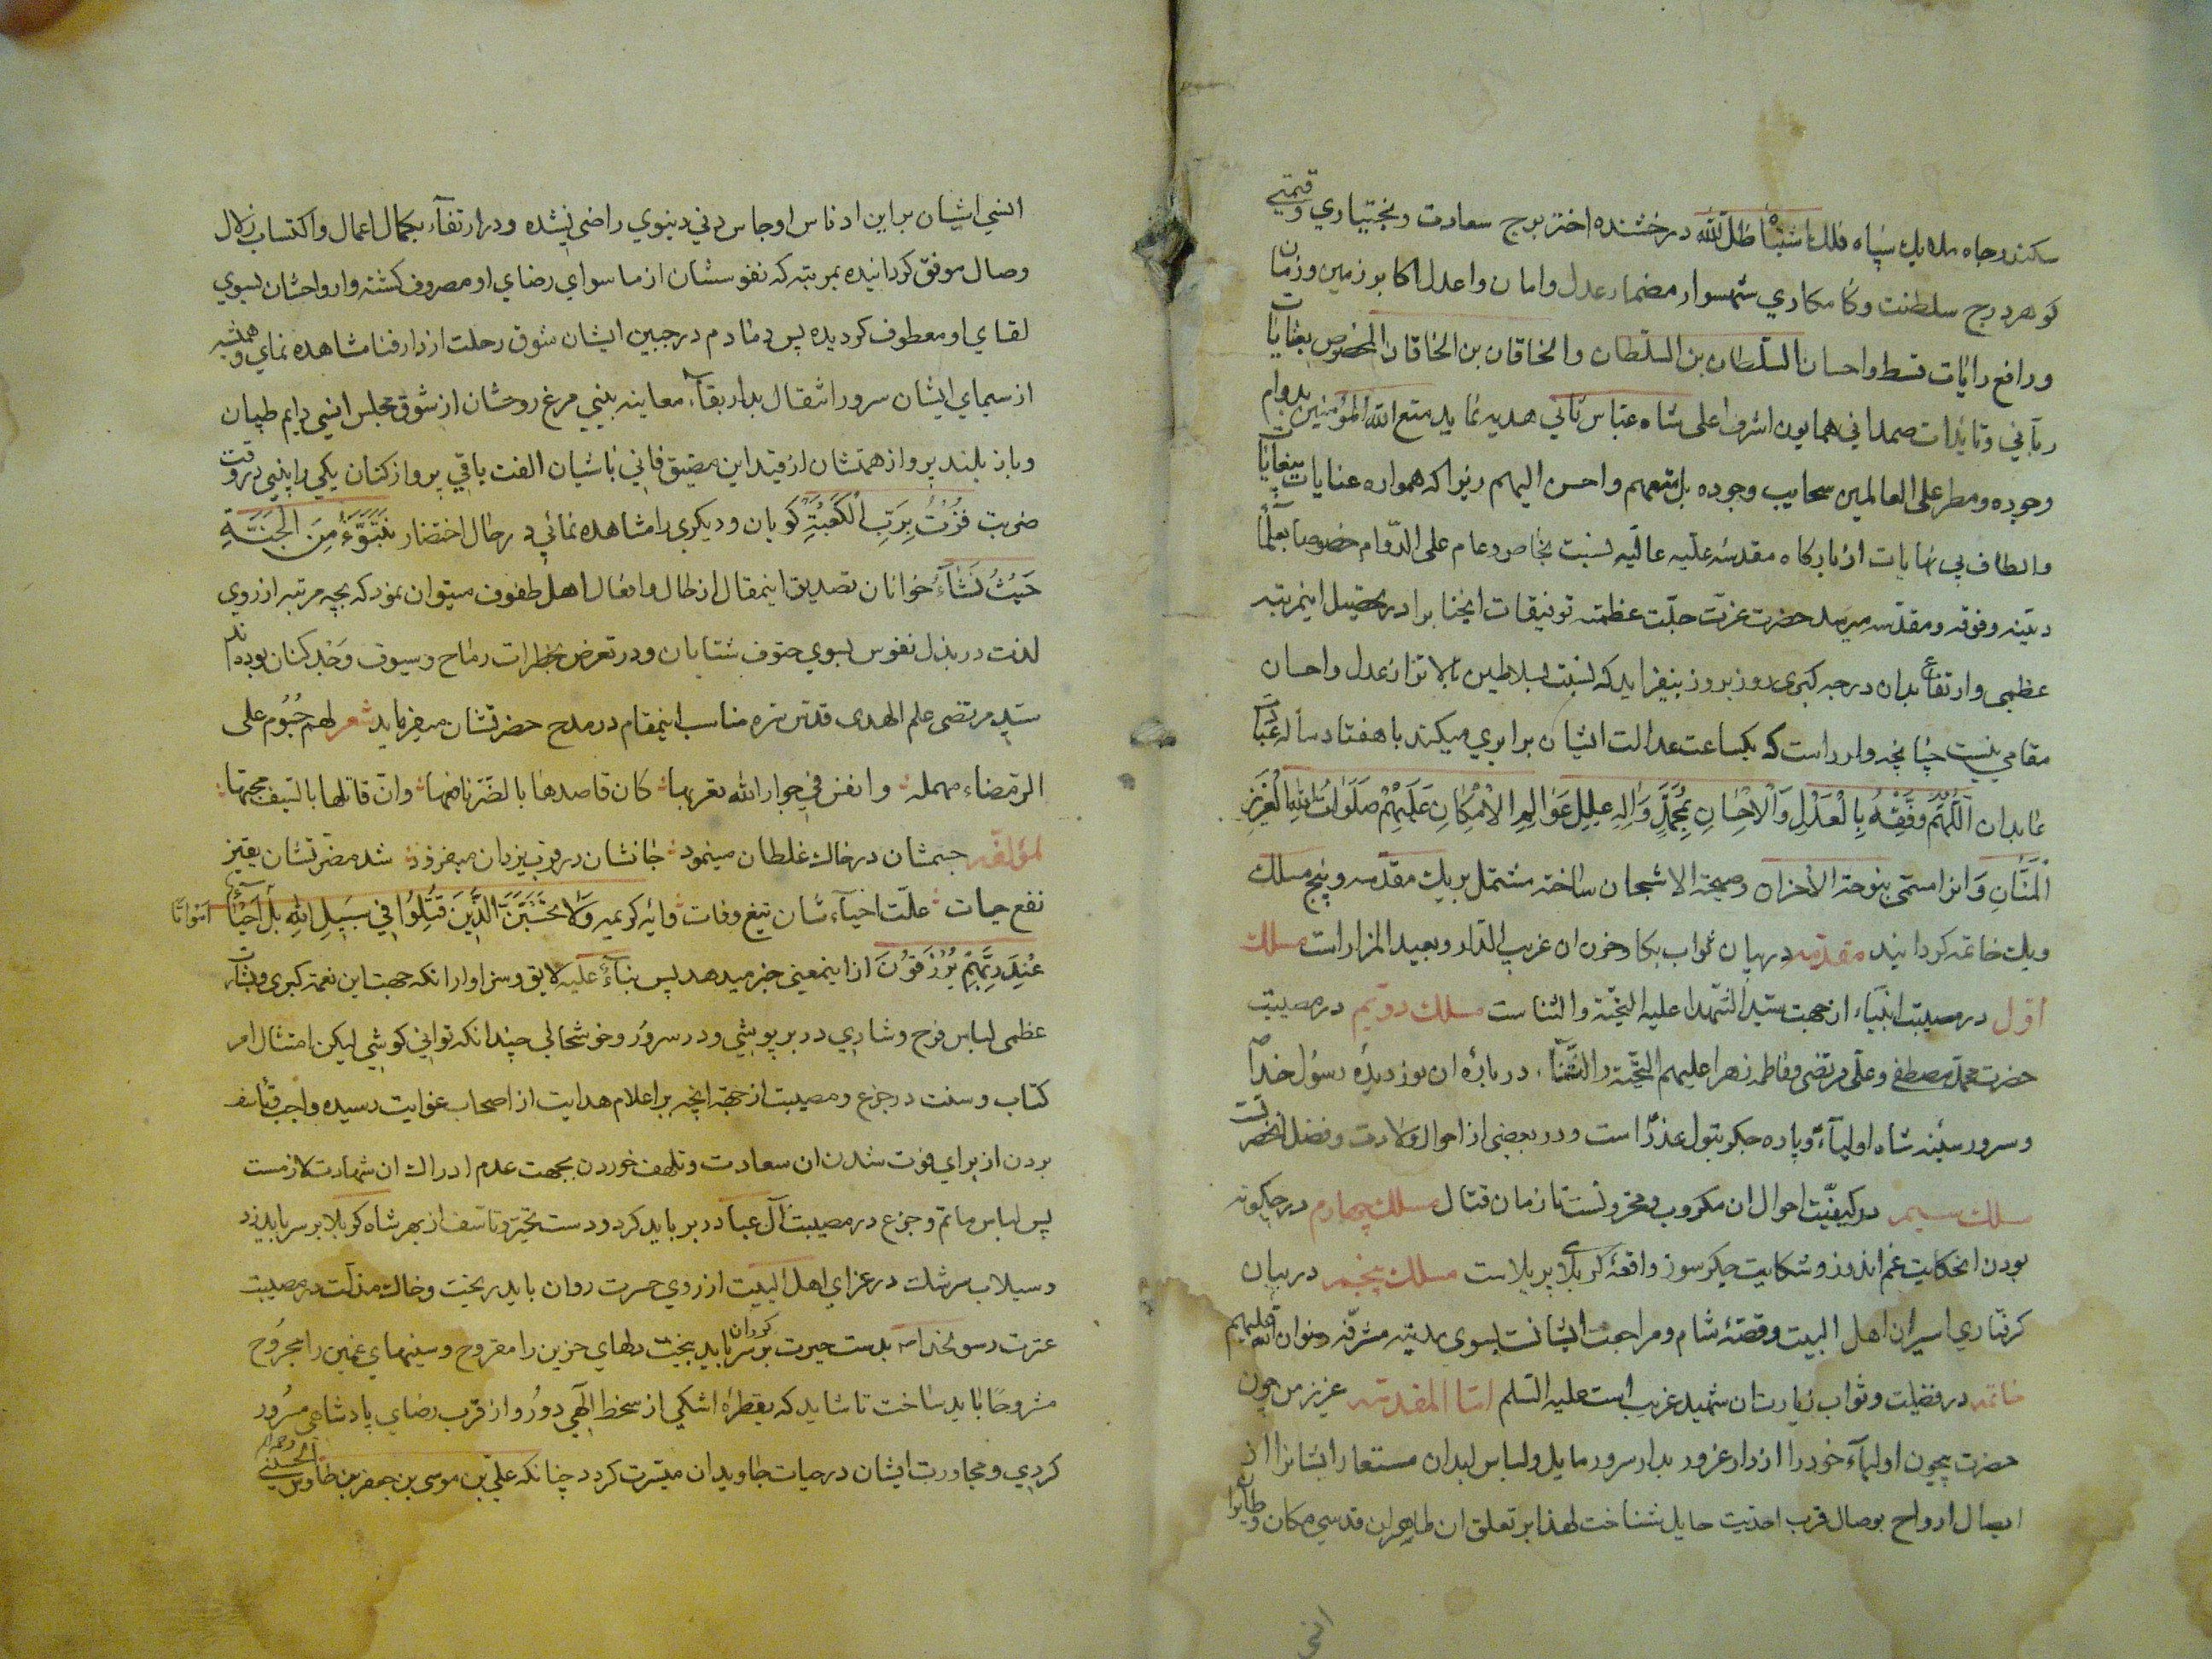 سکندر جاه ملایک سپاه فلک اشتباه ظل الله درخشنده اختر برج سعادت و بختیاری و قیمتی
گوهر درج سلطنت و کامکاری شهسوار مضمار عدل و امان و اعدل اکابر زمین و زمان
و رافع رایات قسط و احسان السلطان بن السلطان والخاقان بن الخاقان المخصوص بعنایات
ربانی و تاییدات صمدانی همایون اشرف اعلی شاه عباس ثانی هدیه نماید متع الله المؤمنین بدوام
وجوده و مطر علی العالمین سحایب وجوده بل متعهم و احسن الیهم زیرا که همواره عنایات بیغایات
و الطاف بی نهایات از بارکاه مقدسه علیه عالیه نسبت بخاص و عام علی الدوام خصوصا بعلماء
دینیه و فوقه و مقدسه میرسد حضرت عزت جلت عظمته توفیقات انجناب را در تحصیل اینمرتبه
عظمی و ارتفاع بدان درجه کبری روز بروز بیفزاید که نسبت بسلاطین بالاتر از عدل و احسان
مقامی نیست چنانچه وارد است که یکساعت عدالت ایشان برابری میکند با هفتاد ساله عبادت
عابدان اَللّٰهُمَّ وَفِّقْهُ بِالْعَدْلِ وَالْاِحْسَانِ بِمُحَمَّدٍ وَاٰلِهِ عِلَلِ عَوَالِمِ الْاِمْكَانِ عَلَيْهِمْ صَلَوَاتُ اللهِ الْعَزِيزِ
الْمَنَّانِ و انرا مسمی بنوحة الاحزان و صیحة الاشجان ساخته مشتمل بر یک مقدمه و پنج مسلک
و یک خاتمه کردانید مقدمه در بیان ثواب بکا و حزن ان غریب الدار و بعید المزار است مسلک
اول در مصیبت انبیاء از جهت سید الشهدا علیه التحیة والثناست مسلک دویم در مصیبت
حضرت محمد مصطفی و علی مرتضی و فاطمه زهرا علیهم التحیة والثناء در باره ان نور دیده رسول خدا
و سرور سینه شاه اولیاء و پاره جکر بتول عذرا است و در بعضی از احوال ولادت و فضل انحضرت
مسلک سیم در کیفیت احوال ان مکروب و محزونست تا زمان قتال مسلک چهارم در چکونه
بودن انحکایت غم اندوز و شکایت جکر سوز واقعهٔ کربلای پر بلاست مسلک پنجم در بیان
کرفتاری اسیران اهل البیت و قصهٔ شام و مراجعت ایشانست بسوی مدینه مشرفه رضوان الله علیهم
خاتمه در فضیلت و ثواب زیارت ان شهید غریب است علیه السلم اما المقدمه عزیز من چون
حضرت بیچون اولیاء خود را از دار غرور بدار سرور مایل و لباس ابدان مستعار ایشانرا از
ایصال ارواح بوصال قرب احدیت حایل شناخت لهذا بر تعلق ان طاهران قدسی مکان و طایران
انسی
انسی ایشان براین ادناس اوجاس دنی دنیوی راضی نشده و در ارتفاء بکمال اعمال و اکتساب زلال
وصال موفق کردانیده بمرتبه که نفوسشان از ماسوای رضای او مصروف کشته و ارواحشان بسوی
لقای او معطوف کردیده پس دمادم در جبین ایشان شوق رحلت از دار فنا مشاهده نمای و همیشه
از سیمای ایشان سرور انتقال بدار بقاء معاینه بینی مرغ روحشان از شوق مجلس انسی دایم طپان
و باز بلند پرواز همتشان از قید این مضیق فانی باشیان الفت باقی پرواز کنان یکی را بینی در وقت
ضربت فُزْتُ بِرَبِّ الْكَعْبَةِ کویان و دیکری را مشاهده نمائی در حال احتضار نَتَبَوَّءُ مِنَ الْجَنَّةِ
حَيْثُ نَشَاءُ خوانان تصدیق اینمقال از حال و افعال اهل طفوف میتوان نمود که بچه مرتبه از روی
لذت در بذل نفوس بسوی حتوف شتابان و در تعرض خطرات رماح و سیوف وجد کنان بوده اند
سید مرتضی علم الهدی قدس سره مناسب اینمقام در مدح حضرتشان میفرماید شعر لهم جسوم علی
الرمضاء مهملة وانفس فی جوار الله یقریها کان قاصدها بالضر نافعها وان قاتلها بالسیف محییها
لمؤلفه جسمشان در خاک غلطان مینمود جانشان در قرب یزدان میفزود شد مضرتشان بغیر
نفع حیات علت احیاء شان تیغ وفات و ایه کریمه وَلَا تَحْسَبَنَّ الَّذِينَ قُتِلُوا فِي سَبِيلِ اللهِ اَمْوَاتًا بَلْ اَحْيَاءٌ
عِنْدَ رَبِّهِمْ يُرْزَقُونَ از اینمعنی خبر میدهد پس بناء علیه لایق و سزاوار انکه جهت این نعمة کبری و بشارت
عظمی لباس فرح و شادی در بر پوشی و در سرور و خوشحالی چندانکه توانی کوشی لیکن امتثال امر
کتاب و سنت در جزع و مصیبت از جهة انچه بر اعلام هدایت از اصحاب غوایت رسیده واجب و تأسف
بردن از برای فوت شدن ان سعادت و تلهف خوردن بجهت عدم ادراک ان شهادت لازمست
پس لباس ماتم و جزع در مصیبت آل عبا در بر باید کرد و دست تحیر و تاسف از بهر شاه کربلا بر سر باید زد
و سیلاب سرشک در عزای اهل البیت از روی حسرت روان باید ریخت و خاک مذلت در مصیبت
عترت رسولخدا صم بدست حیرت بر سر کردان باید بیخت دلهای حزین را مقروح و سینهای غمین را مجروح
مشروحا باید ساخت تا شاید که بقطره اشکی از سخط الهی دور و از قرب رضای پادشاهی مسرور
کردی و مجاورت ایشان در حیات جاویدان میسرت کردد چنانکه علی بن موسی بن جعفر بن طاوس الحسنی رحمه الله